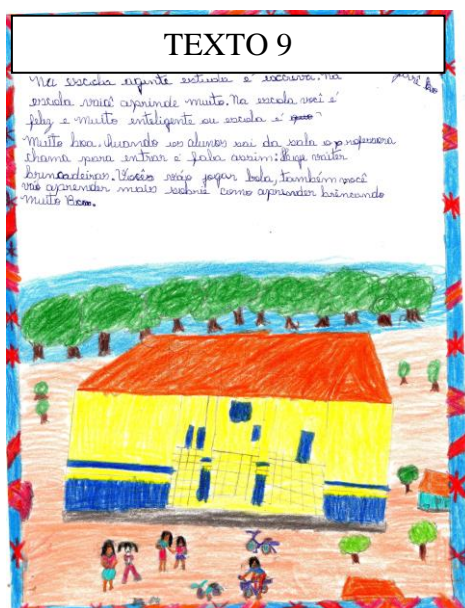 TEXTO 9
Na escola agente estuda e escreve. Na
escola você aprinde muito. Na escola você é
feliz e muito inteligente ou escola é
Muito boa. Quando os alunos sai da sala a professora
chama para entrar e fala assim: Hoje vai ter
brincadeiras. Vocês vão jogar bola, também você
vão aprender mais sobre como aprender brincando
muito Bom.